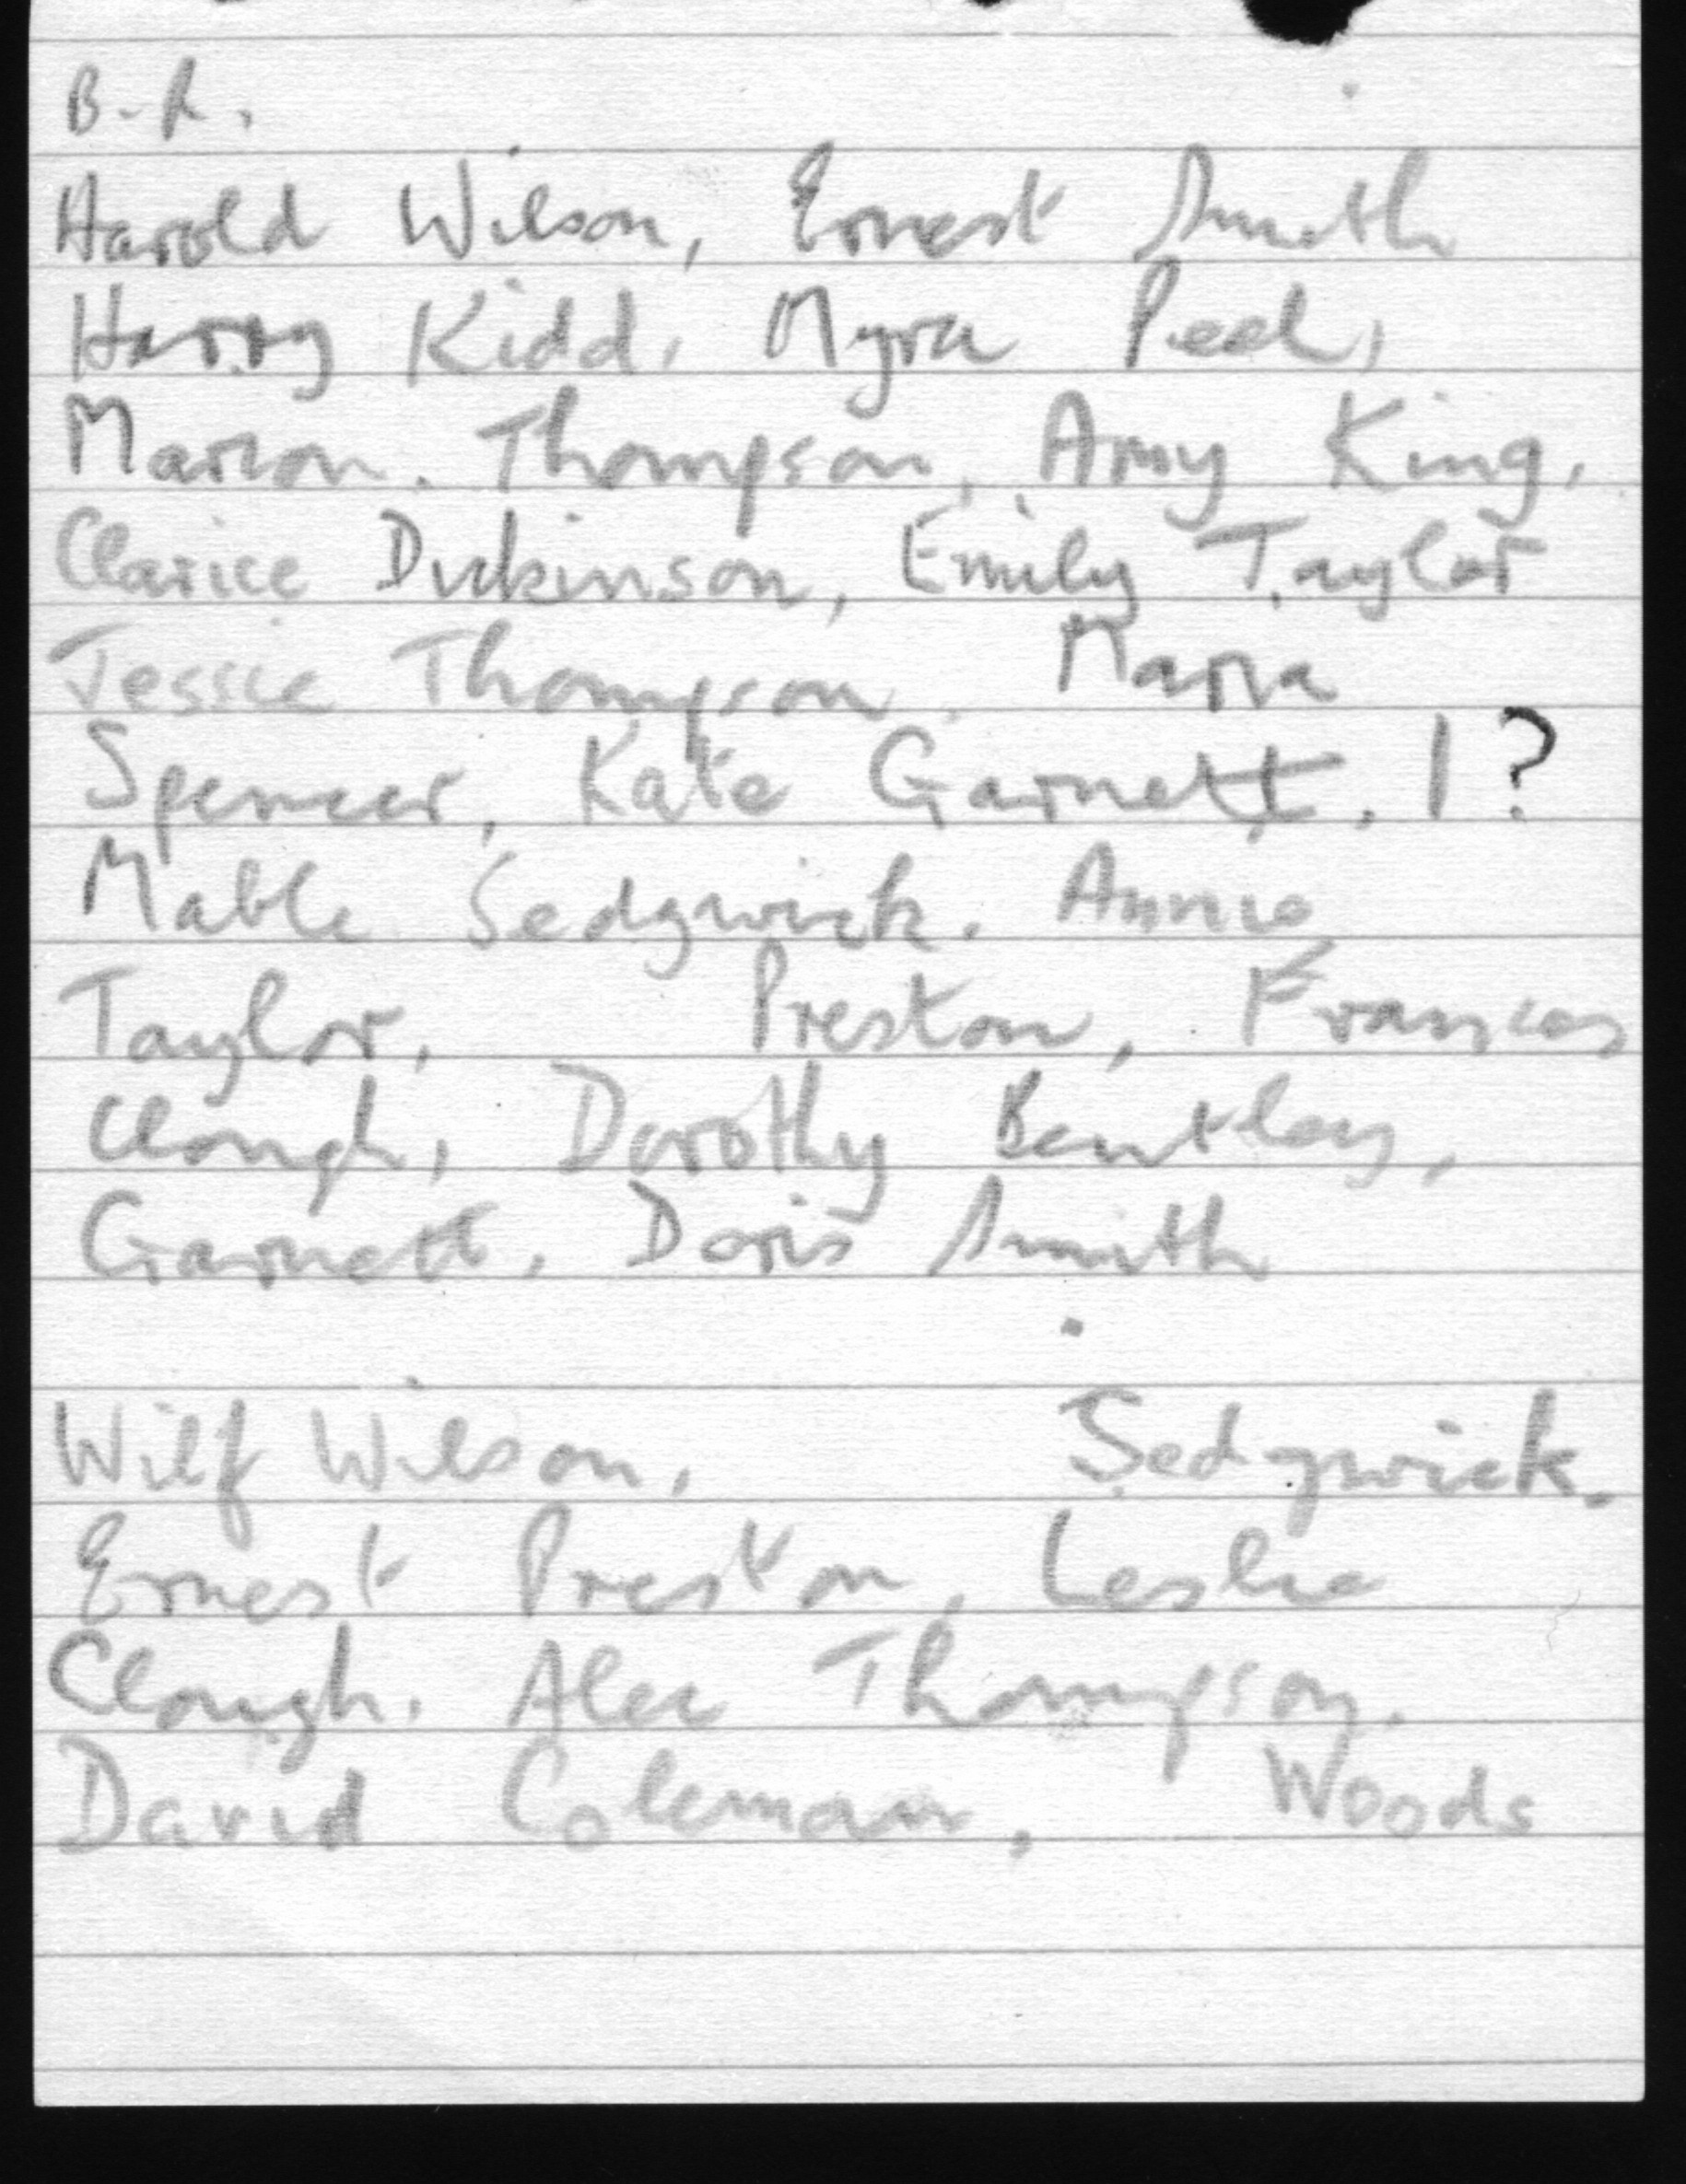 B-R.
Harold Wilson, Ernest Smith
Harry Kidd, Myra Peel,
Marion. Thompson, Amy King,
Clarice Dickinson, Emily Taylor
Jessie Thompson, Maria
Spencer, Kate Garnett, 1?
Mable Sedgwick. Annie
Taylor, Preston, Frances
Clough, Dorothy Bentley,
Garnett, Doris Smith
Wilf Wilson, Sedgwick.
Ernest Preston, Leslie
Clough. Alec Thompson.
David Coleman, Woods